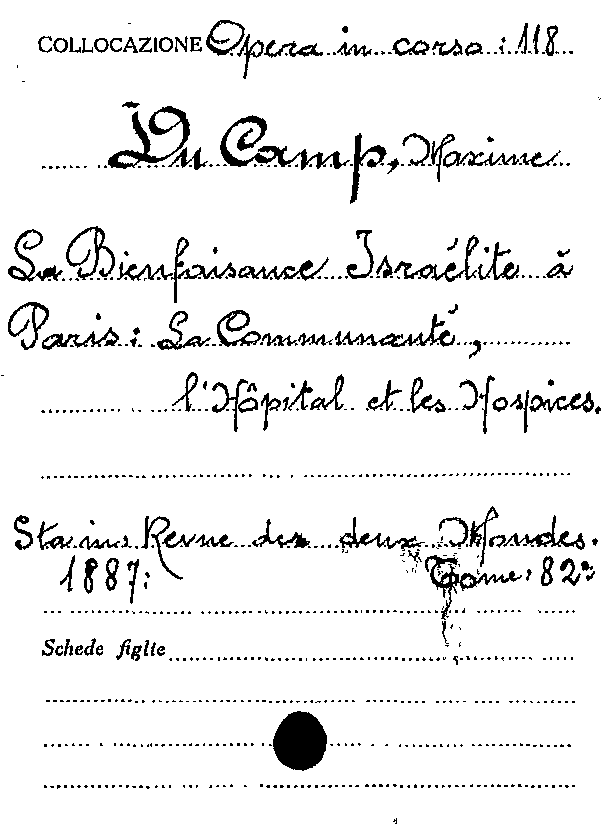 COLLOCAZIONE Opera in corso: 118
Du Camp, Maxime
La Bienfaisance Israélite à
Paris: La Communauté,
l'Hôpital et les Hospices.
Sta in: Revue des deux Mondes.
1887: Tome: 82º
Schede figlie